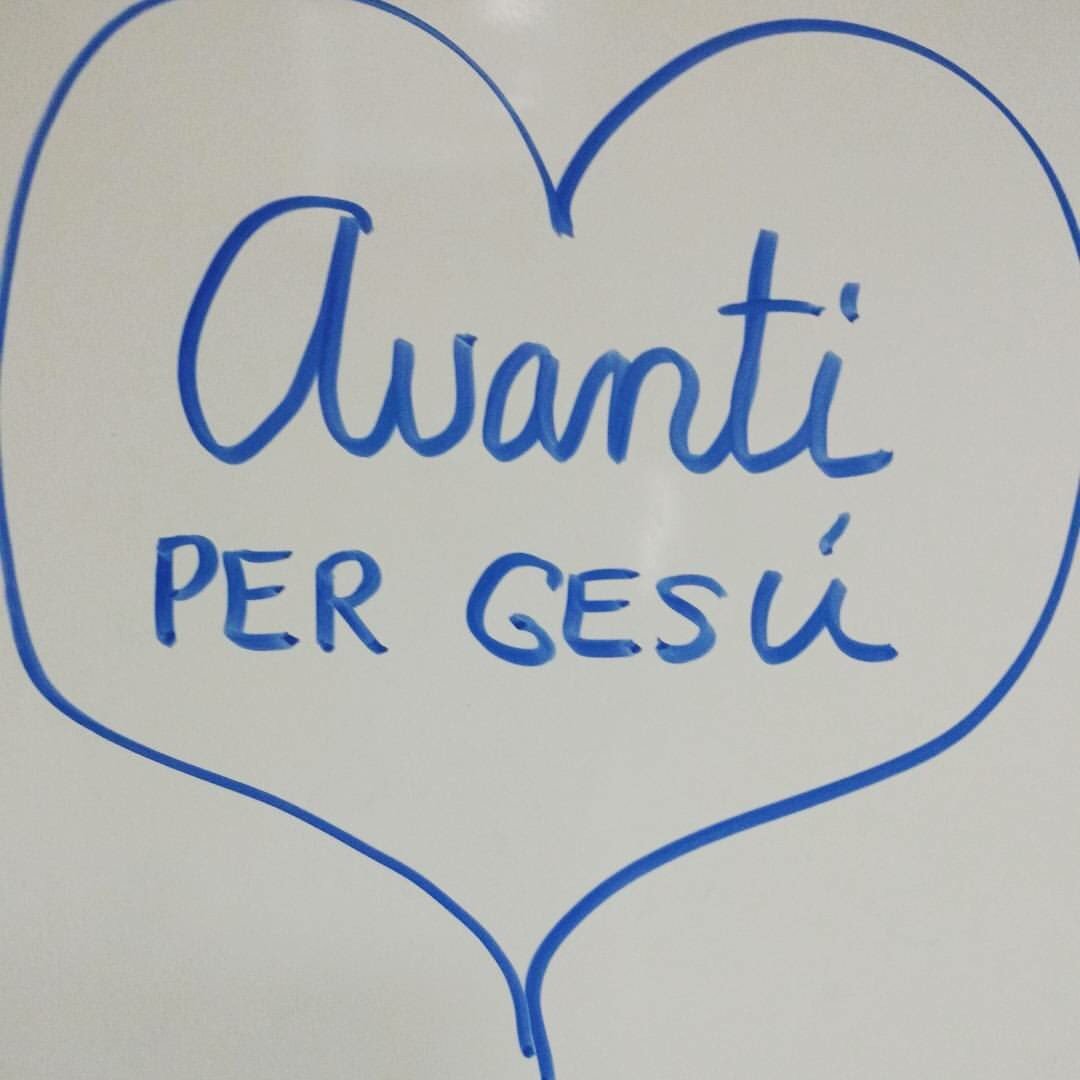 Avanti
PER GESÚ